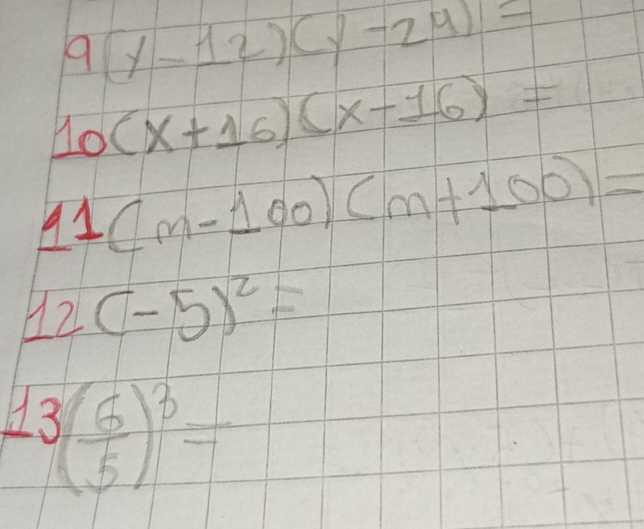 9(y-12)(y-24)=
10(x+16)(x-16)=
11(m-100)(m+100)=
12(-5)²=
13(6/5)³=